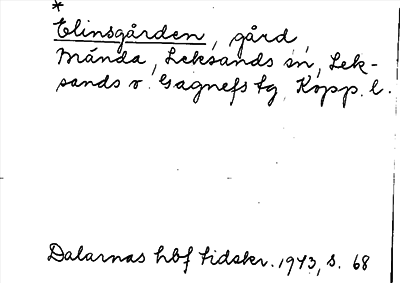 *
Elinsgården, gård,
Månda, Leksands sn, Lek-
sands o. Gagnefs tg, Kopp. l.
Dalarnas hbf tidskr. 1973, s. 68